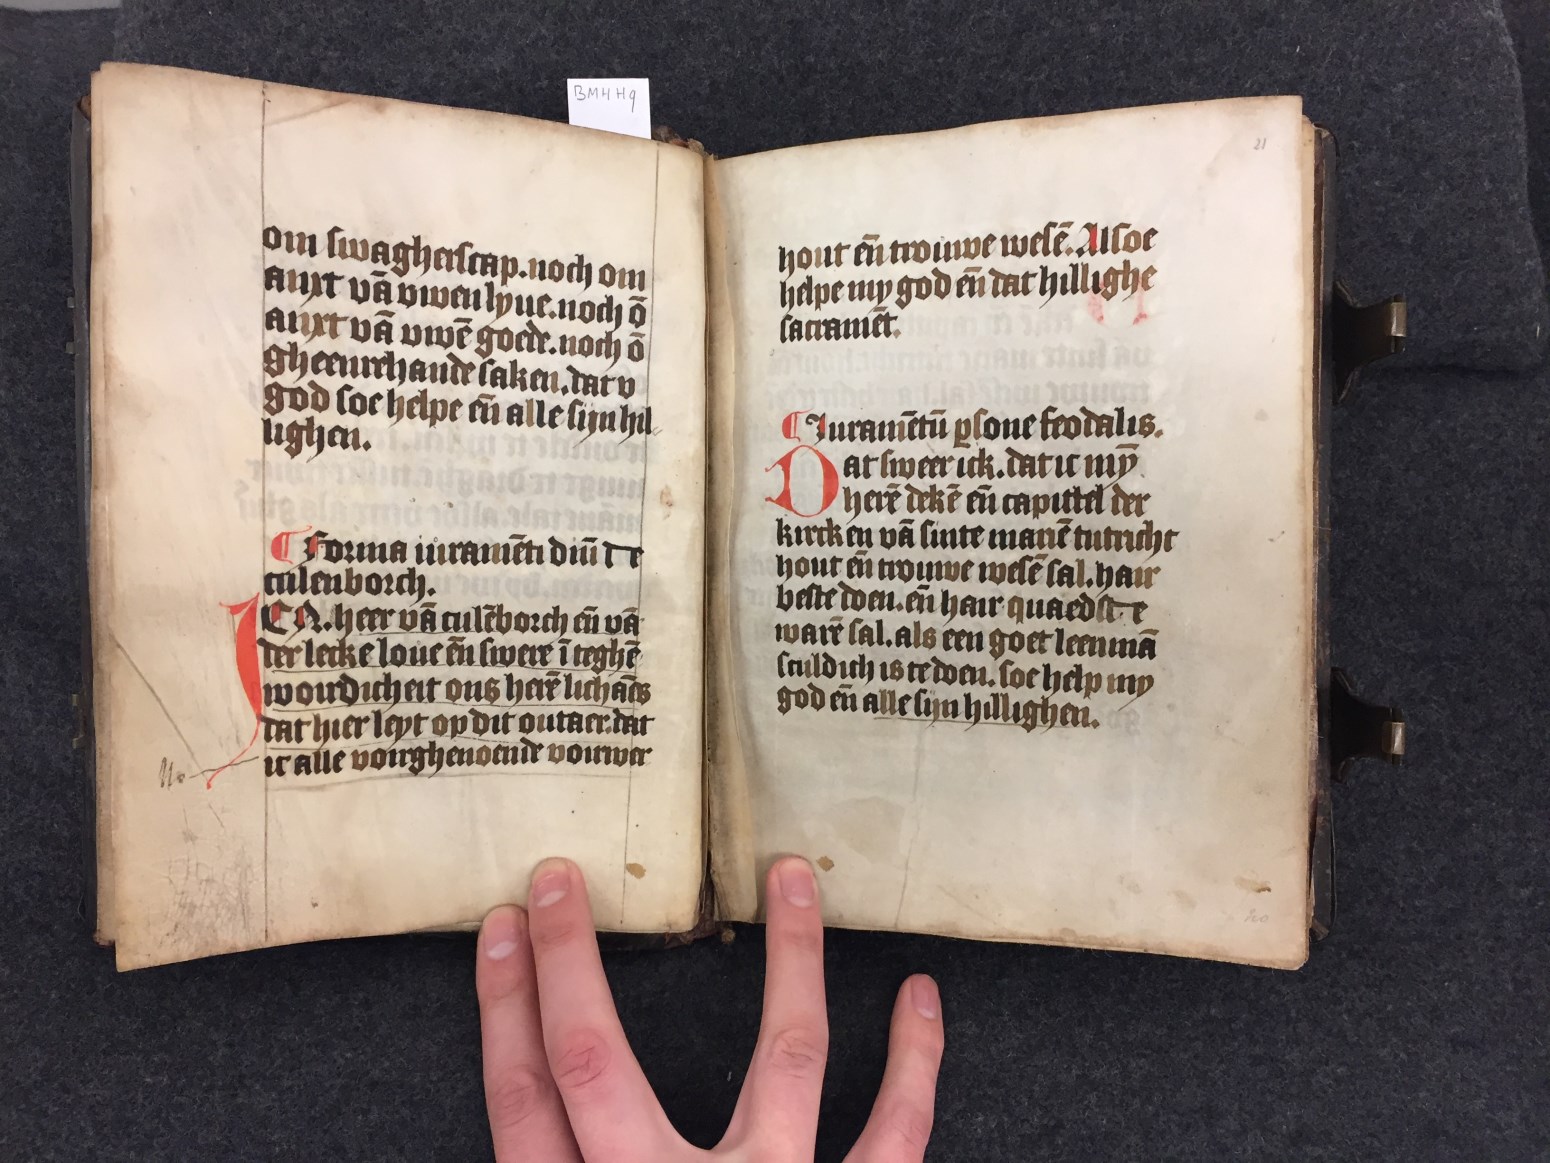 BMH H9
om swagherscap. noch om
anxt vā vwen lyue. noch ō
anxt vā vwē goede. noch ō
gheenrehande saken. dat v
god soe helpe eñ alle sijn hil-
lighen.
¶ Forma iuramēti dñi de
culenborch.
IC N. heer vā culēborch eñ vā
der lecke loue eñ swere ī teghē
woirdicheit ons herē lichāēs
dat hier leyt op dit outaer. dat
ic alle voirghenoemde voirwer
No
21
hout eñ trouwe wesē. Alsoe
helpe my god eñ dat hillighe
sacramēt.
¶ Iuramētū ꝑsone feodalis.
Dat sweer ick. dat ic mȳ
herē dekē eñ capittel der
kircken vā sinte mariē tutricht
hout eñ trouwe wesē sal. hair
beste doen. eñ hair quaedste
warē sal. als een goet leenmā
sculdich is te doen. soe help my
god eñ alle sijn hillighen.